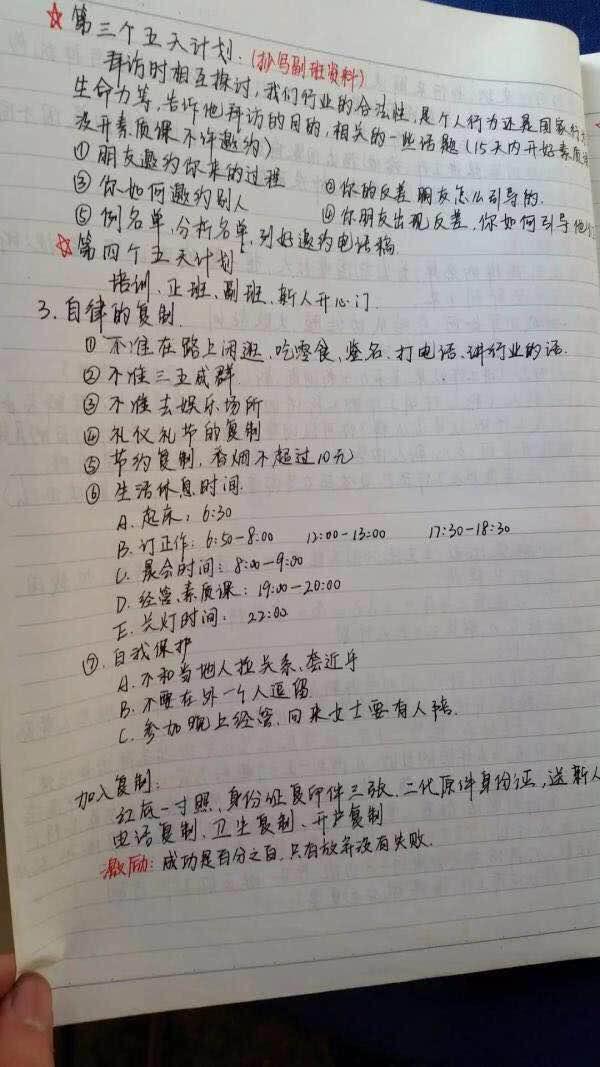 ☆ 第三个五天计划:(抄写副班资料)
拜访时相互探讨,我们行业的合法性,是个人行为还是国家行
生命力等,告诉他拜访的目的,相关的一些话题(15天内开好素质课
没开素质课不许邀约)
① 朋友邀约你来的过程 ②你的反差朋友怎么引导的.
③ 你如何邀约别人 ④你朋友出现反差,你如何引导他
⑤ 例名单,分析名单,列好邀约电话稿
☆ 第四个五天计划
培训、正班、副班、新人开心门.
3.自律的复制.
① 不准在路上闲逛、吃零食、签名、打电话、讲行业的话.
② 不准三五成群.
③ 不准去娱乐场所
④ 礼仪礼节的复制
⑤ 节约复制,香烟不超过10元
⑥ 生活休息时间.
A.起床:6:30
B.订正作:6:50-8:00 12:00-13:00 17:30-18:30
C.晨会时间:8:00-9:00
D.经营、素质课:19:00-20:00
E.关灯时间: 22:00
⑦.自我保护
A.不和当地人拉关系、套近乎
B.不要在外一个人逗留
C.参加晚上经营,回来女士要有人陪.
加入复制:
红底一寸照、身份证复印件三张、二代原件身份证,送新人
电话复制、卫生复制、开户复制
激励:成功是百分之百,只有放弃没有失败.